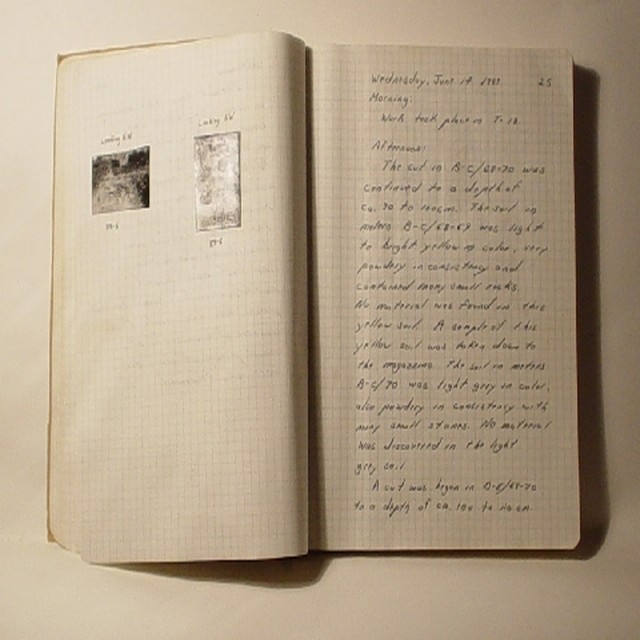 Looking NW
Looking NW
Wednesday, June 14, 25
Morning:
Work took place in T-18.
Afternoon:
The cut in B-C/68-70 was
continued to a depth of
ca. 90 to 100cm. The soil in
meters B-C/68-69 was light
to bright yellow in color, very
powdery in consistency and
contained many small rocks.
No material was found in this
yellow soil. A sample of this
yellow soil was taken down to
the magazine. The soil in meters
B-C/70 was light grey in color,
also powdery in consistency with
many small stones. No material
was discovered in the light
grey soil.
A cut was begun in
to a depth of ca. 100 to 110 cm.